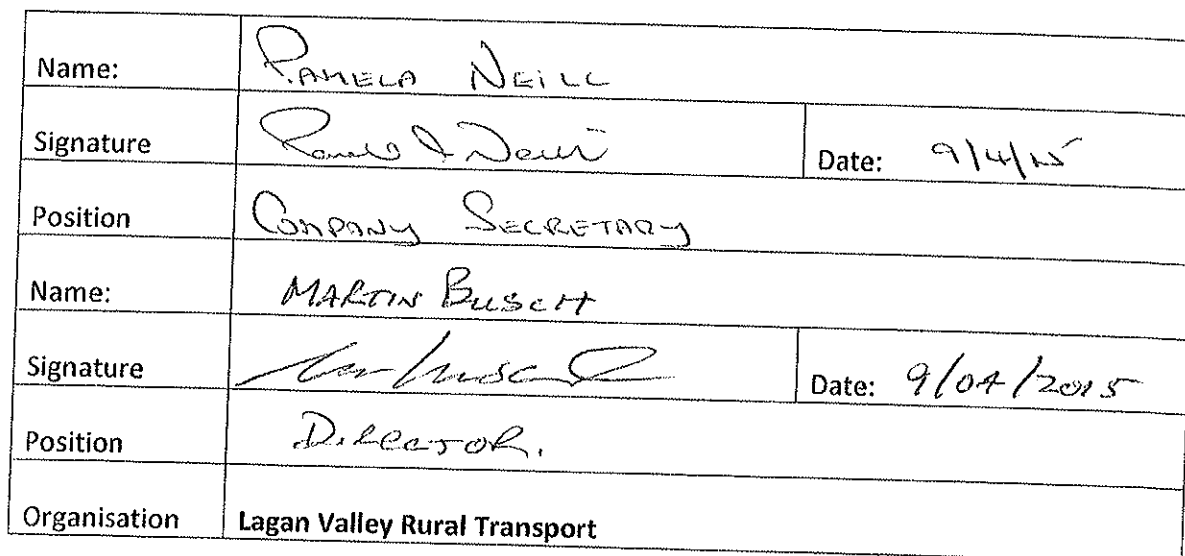 Name: PAMELA NEILL
Signature Date: 9/4/15
Position COMPANY SECRETARY
Name: MARTIN BUSCH
Signature Date: 9/04/2015
Position DIRECTOR.
Organisation Lagan Valley Rural Transport